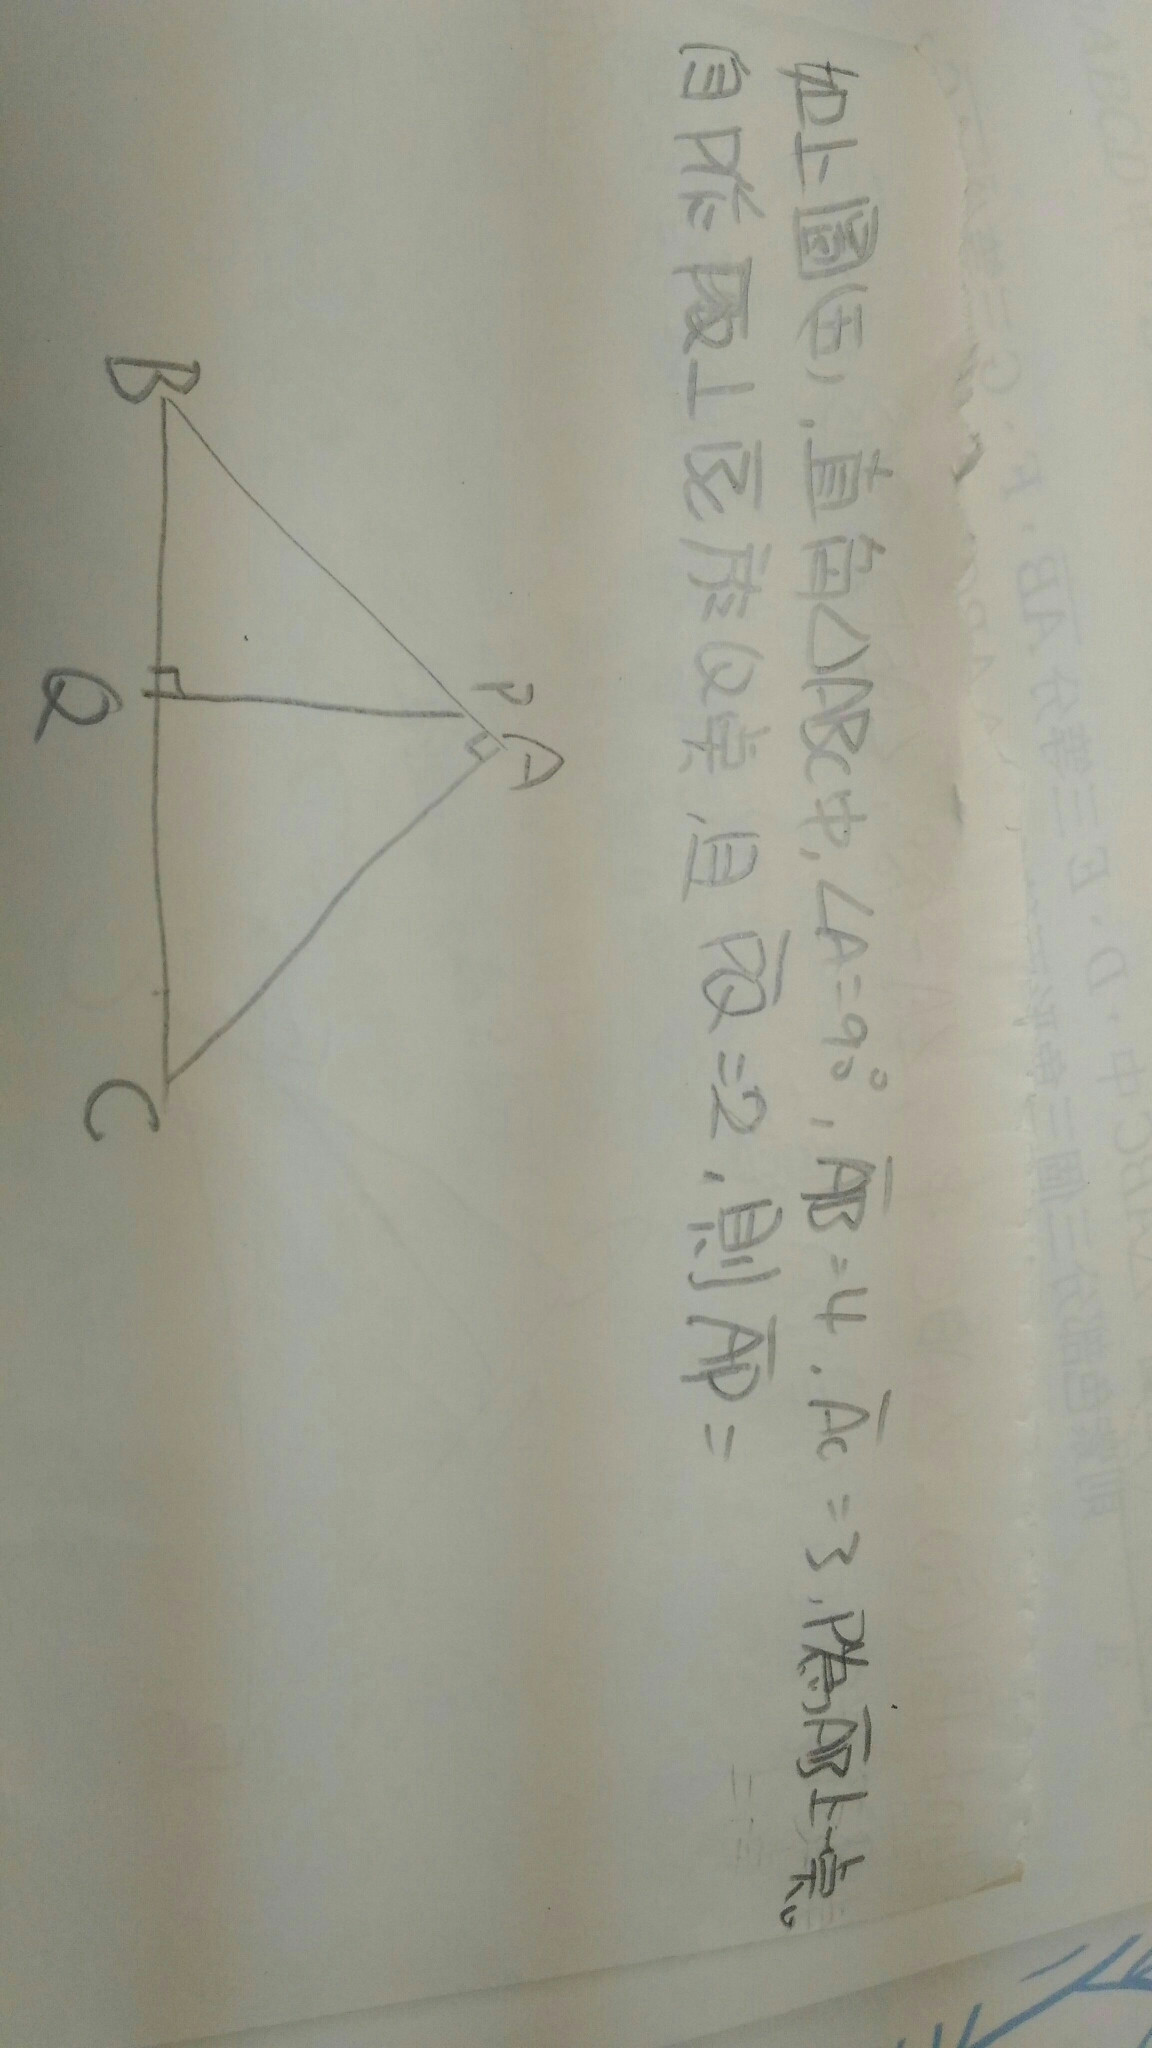 如上圖(五),直角△ABC中,∠A=90°,AB=4,AC=3,P為AB上一點。
自P作PQ⊥BC於Q點,且PQ=2,則AP=
A
P
B
Q
C